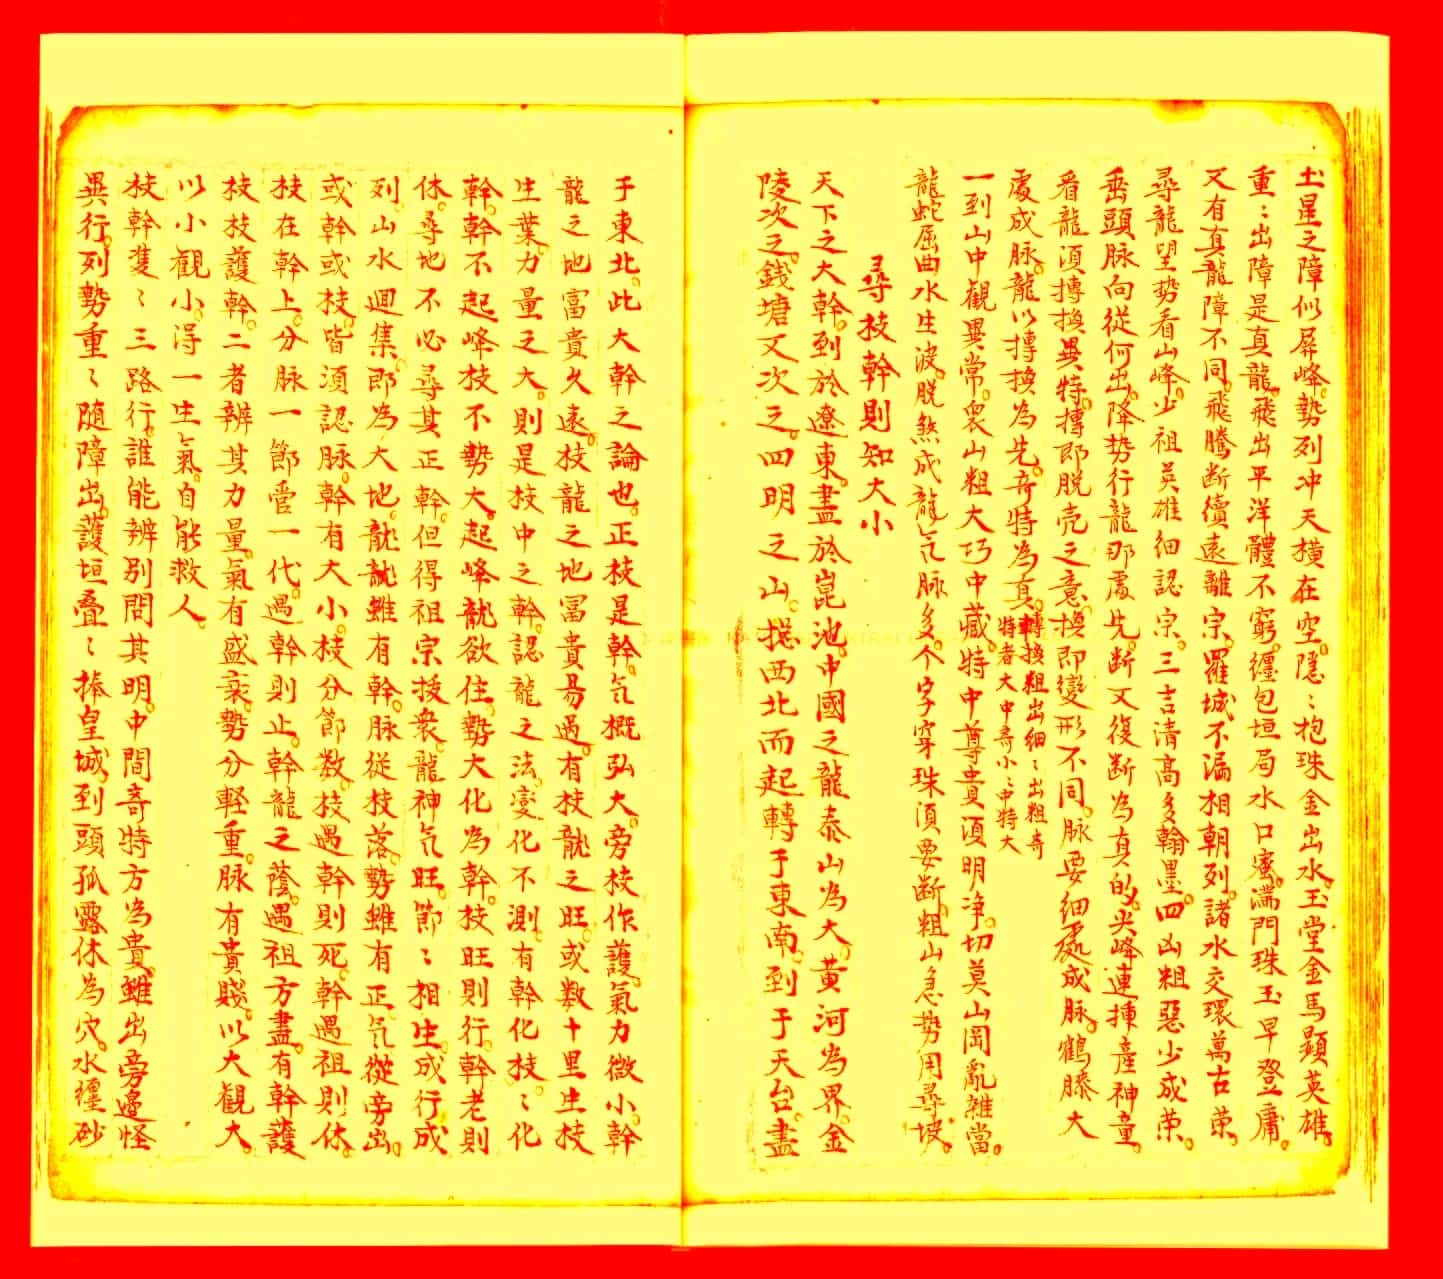 土星之障似屏峰。勢列冲天橫在空。隱〻抱珠金出水。玉堂金馬顯英雄。
重〻出障是真龍。飛出平洋體不窮。纏包垣局水口密。滿門珠玉早登庸。
又有真龍障不同。飛騰斷續遠離宗。羅城不漏相朝列。諸水交環萬古荣。
尋龍望勢看山峰。少祖英雄細認宗。三吉清高多翰墨。四凶粗惡少成荣。
垂頭脉向從何出。降勢行龍那處先。断又復断為真的。尖峰連揷產神童。
看龍須摶換異特。摶即脱壳之意。換即變形不同。脉要細處成脉。鶴膝大
處成脉。龍以摶換為先。奇特為真。轉換粗出細〻出粗奇
特者大中奇小〻中特大
一到山中觀異常。衆山粗大巧中藏。特中尊貴須明净。切莫山岡亂雜當。
龍蛇屈曲水生波。脱煞成龍气脉多。个字穿珠須要断。粗山急勢用尋坡。
尋枝幹則知大小
天下之大幹。到於遼東。盡於崑池。中國之龍泰山為大。黃河為界。金
陵次之。錢塘又次之。四明之山。捴西北而起轉于東南。到于天台。盡
于東北。此大幹之論也。正枝是幹。气概弘大。旁枝作護。氣力微小。幹
龍之地富貴久遠。枝龍之地富貴易過。有枝龍之旺。或数十里生枝
生葉。力量之大。則是枝中之幹。認龍之法。变化不測。有幹化枝。〻化
幹。幹不起峰枝不勢大。起峰龍欲住。勢大化為幹。枝旺則行。幹老則
休。尋地不必尋其正幹。但得祖宗授衆。龍神气旺。節〻相生。成行成
列。山水迴集。即為大地。龍龍雖有幹。脉從枝落。勢雖有正气從旁出。
或幹或枝。皆須認脉。幹有大小。枝分節数。枝遇幹則死。幹遇祖則休。
枝在幹上。分脉一節管一代。遇幹則止。幹龍之蔭。遇祖方盡。有幹護
枝枝護幹。二者辨其力量。氣有盛衰。勢分軽重。脉有貴賤。以大觀大。
以小觀小。得一生氣。自能救人。
枝幹隻〻三路行。誰能辨別問其明。中間奇特方為貴。雖出旁邊怪
異行。列勢重〻随障出。護垣疊〻捧皇城。到頭孤露休為穴。水纏砂